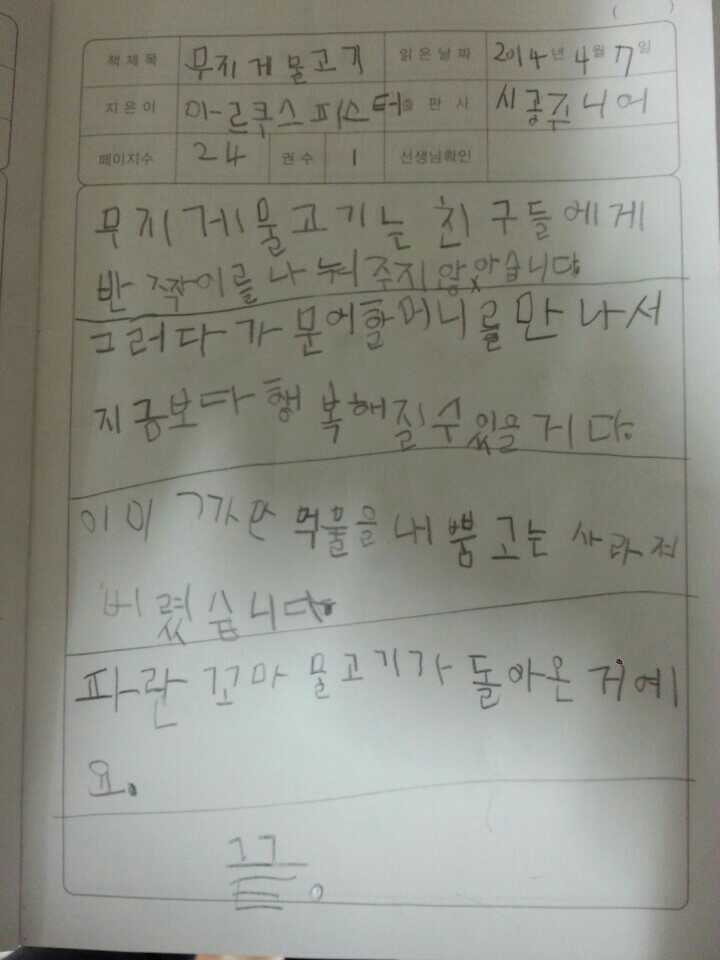 책제목 무지게물고기 읽은날짜 2014년 4월 17일
지은이 마르쿠스피스터 출판사 시공주니어
페이지수 24 권수 1 선생님확인
무지게물고기는 친구들에게
반짝이를 나눠주지않았습니다
그러다가 문어할머니를만나서
지금보다 행복해질수있을거다.
이미 까만 먹물을 내뿜고는 사라져
버렸습니다.
파란 꼬마 물고기가 돌아온 거예
요.
끝.